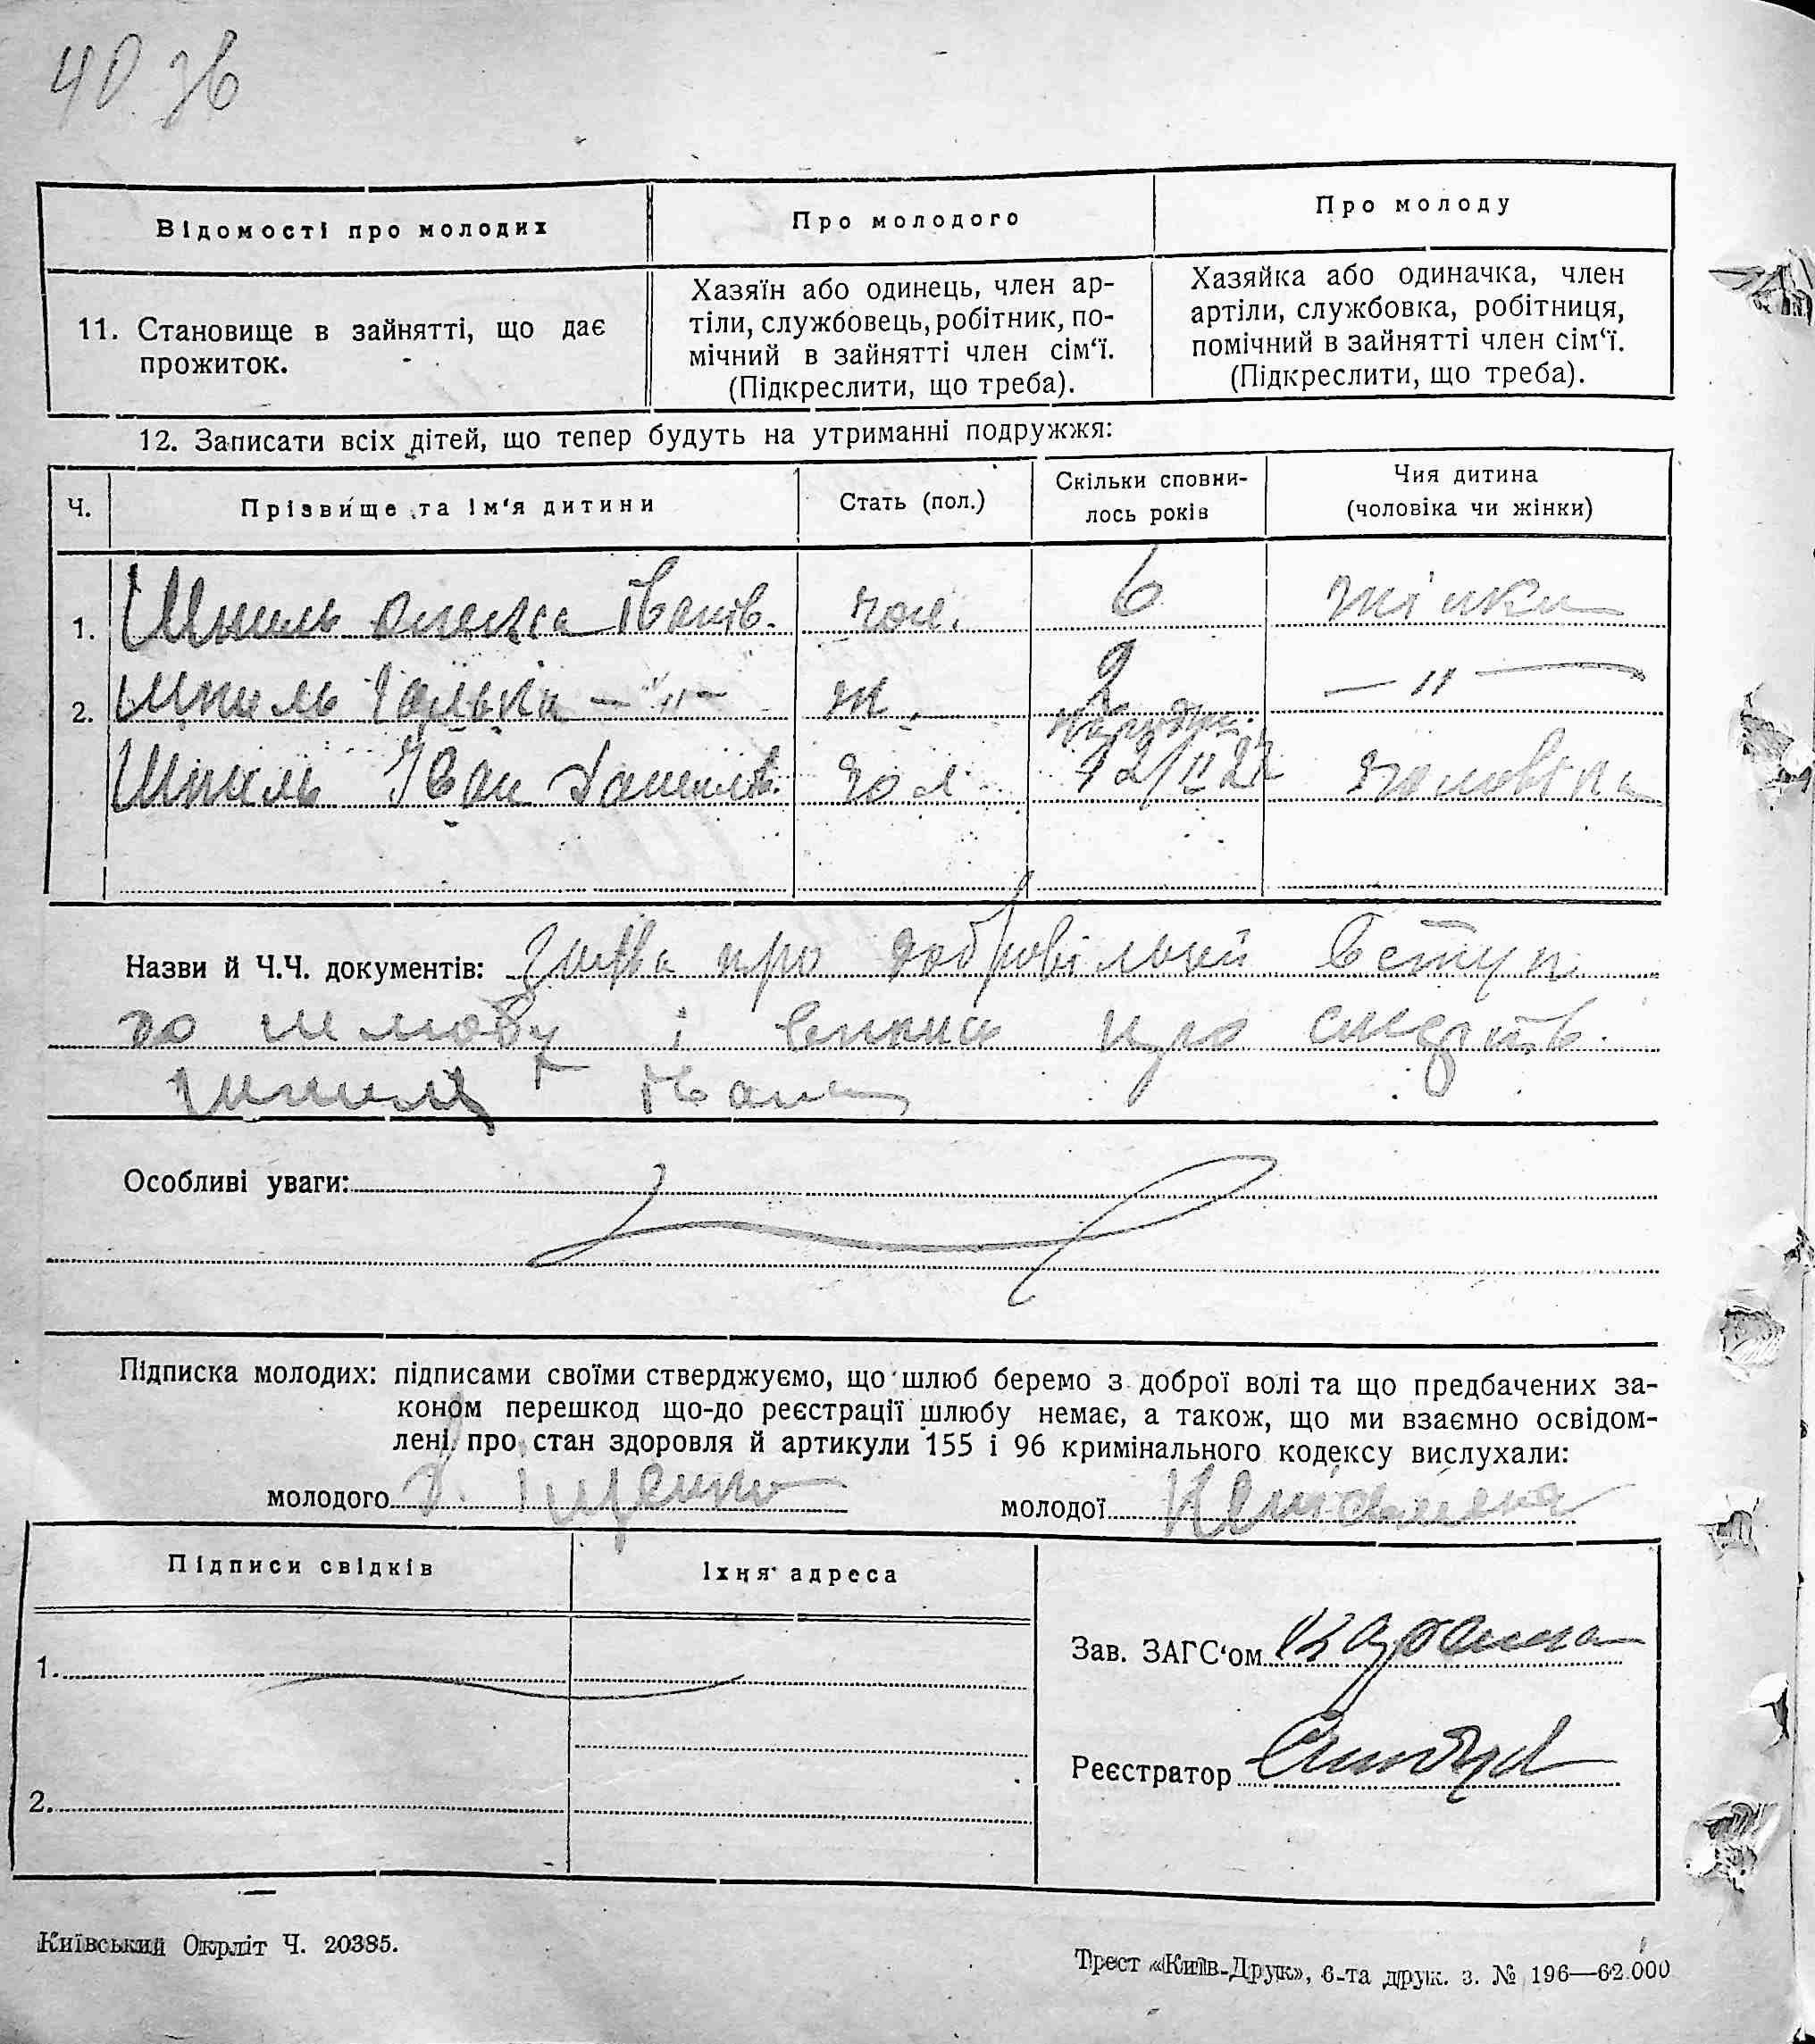 40 зв
Відомості про молодих
Про молодого
Про молоду
11. Становище в зайнятті, що дає
прожиток.
Хазяїн або одинець, член ар-
тіли, службовець, робітник, по-
мічний в зайнятті член сім‘ї.
(Підкреслити, що треба).
Хазяйка або одиначка, член
артіли, службовка, робітниця,
помічний в зайнятті член сім‘ї.
(Підкреслити, що треба).
12. Записати всіх дітей, що тепер будуть на утриманні подружжя:
Ч.
Прізвище та ім‘я дитини
Стать (пол.)
Скільки сповни-
лось років
Чия дитина
(чоловіка чи жінки)
1. Шпиль Олекса Іванів. чол. 6 жінки
2. Шпиль Галька — " — ж. 2 — " —
Шпиль Іван Данилів. чол. 12/II 27 чоловіка
Назви й Ч.Ч. документів: Заява про добровільний вступ
до шлюбу і випис про смерть
Шпиля Івана
Особливі уваги:
Підписка молодих: підписами своїми стверджуємо, що шлюб беремо з доброї волі та що предбачених за-
коном перешкод що-до реєстрації шлюбу немає, а також, що ми взаємно освідом-
лені про стан здоровля й артикули 155 і 96 кримінального кодексу вислухали:
молодого
молодої
Підписи свідків
Їхня адреса
1.
2.
Зав. ЗАГС‘ом
Реєстратор
Київський Окрліт Ч. 20385.
Трест «Київ-Друк», 6-та друк. з. № 196—62.000